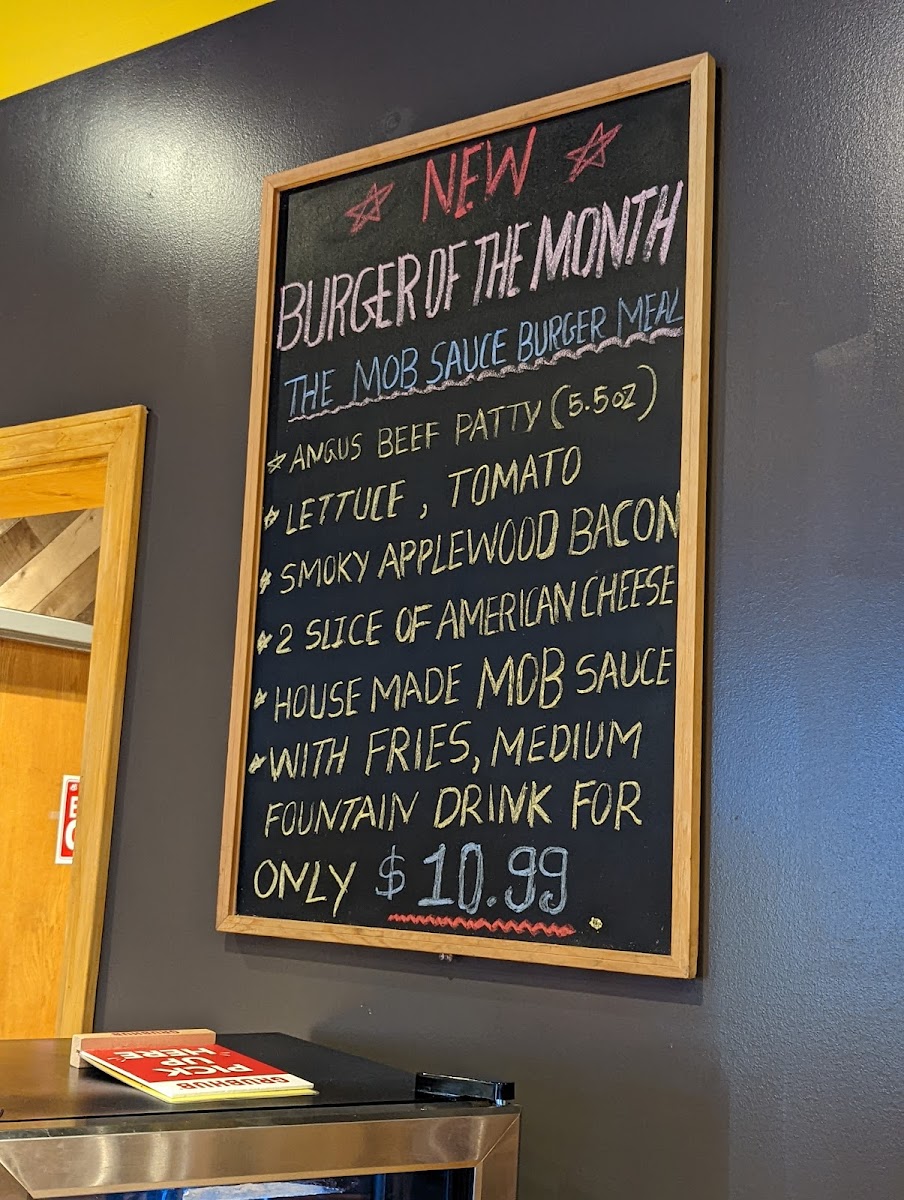 NEW
BURGER OF THE MONTH
THE MOB SAUCE BURGER MEAL
ANGUS BEEF PATTY (5.5oz)
LETTUCE, TOMATO
SMOKY APPLEWOOD BACON
2 SLICE OF AMERICAN CHEESE
HOUSE MADE MOB SAUCE
WITH FRIES, MEDIUM
FOUNTAIN DRINK FOR
ONLY $10.99
GRUBHUB
PICK
UP
HERE
GRUBHUB